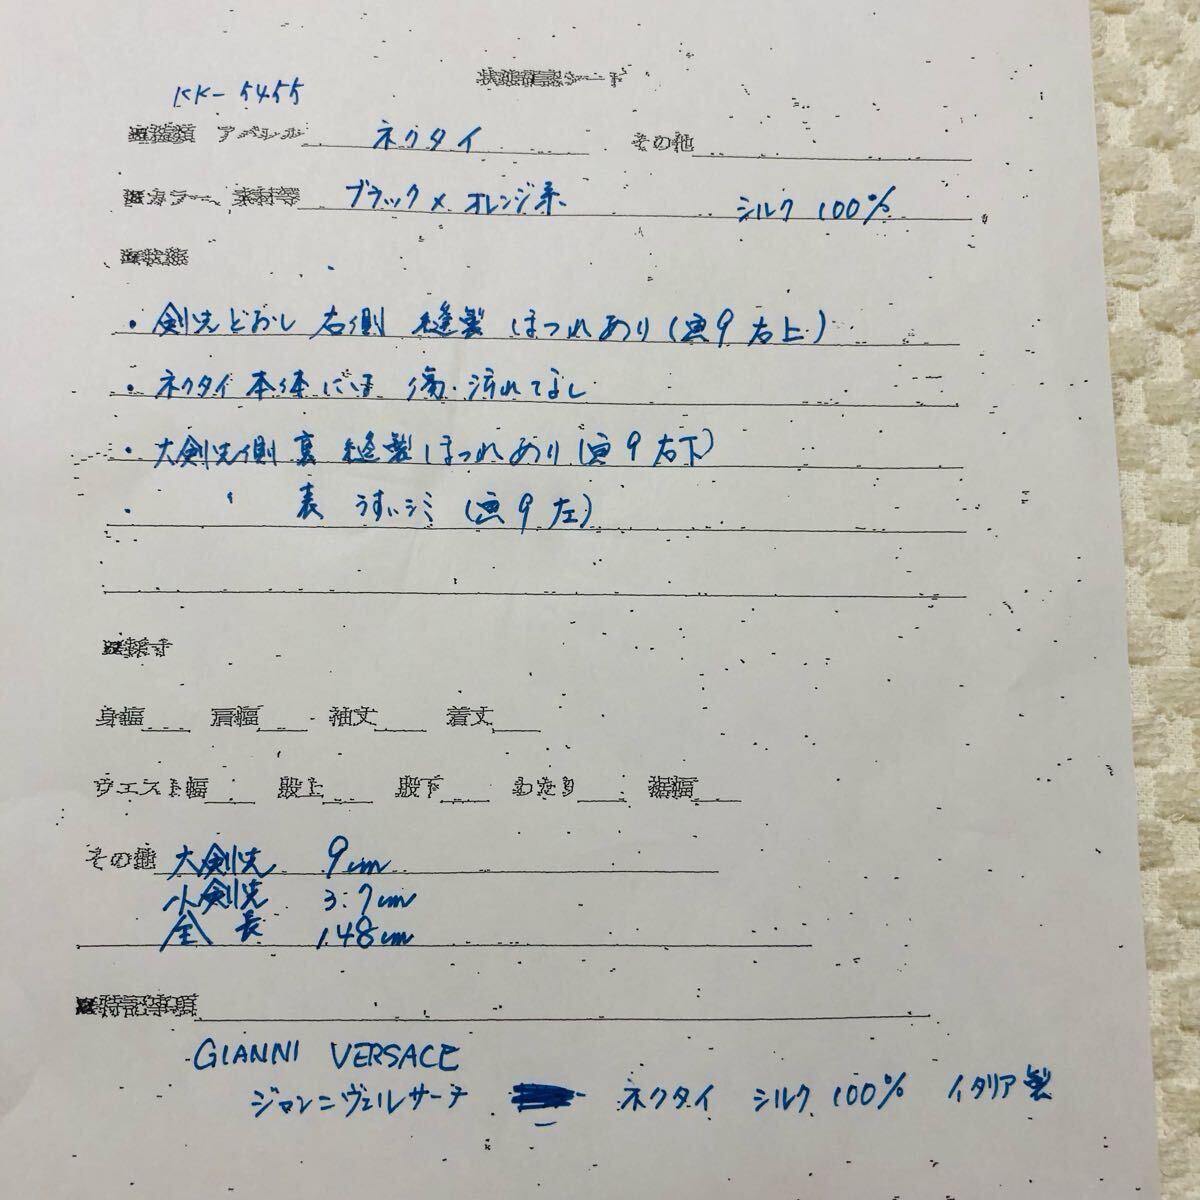 状態確認シート
KK-5455
■種類 アパレル ネクタイ その他
■カラー、素材等 ブラック×オレンジ系 シルク 100%
■状態
・剣先どおし 右側 縫製 ほつれあり(画9 右上)
・ネクタイ本体には 傷・汚れてなし
・大剣先側 裏 縫製ほつれあり(画9 右下)
・ 〃 表 うすいシミ (画9 左)
■採寸
身幅 肩幅 袖丈 着丈
ウエスト幅 股上 股下 わたり 裾幅
その他 大剣先 9cm
小剣先 3.7cm
全長 148cm
■特記事項
GIANNI VERSACE
ジャンニヴェルサーチ ネクタイ シルク 100% イタリア製